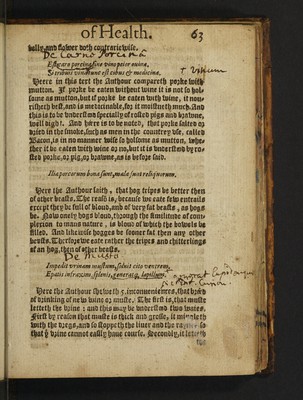 of Health. 63
vally, and slower doth contrariewise.
De carne Porcina
Est caro porcina sine vino peior ouina,
Si tribuis vina, tunc est cibus & medicina.
† vinum
Heere in this text the Authour compareth porke with
mutton. If porke be eaten without wine it is not so hol-
some as mutton, but if porke be eaten with wine, it nou-
risheth best, and is metcinable, for it moistneth much. And
this is to be vnderstood specially of rosted pigs and brawne,
well dight. And here is to be noted, that porke salted or
dried in the smoke, such as men in the countrey vse, called
Bacon, is in no manner wise so holsome as mutton, whe-
ther it be eaten with wine or no, but it is vnderstood by ro-
sted porke, or pig, or brawne, as is before said.
Ilia porcorum bona sunt, mala sunt reliquorum.
Here the Authour saith, that hog tripes be better then
of other beasts. The reason is, because we eate few entrails
except they be full of bloud, and of very fat beasts, as hogs
be. Now onely hogs bloud, through the similitude of com-
plexion to mans nature, is bloud of which the bowels be
filled. And likewise hogges be sooner fat then any other
beasts. Therefore we eate rather the tripes and chitterlings
of an hog, then of other beasts.
De Musto
Impedit vrinam mustum, soluit cito ventrem,
Epatis infraxim, splenis, generatq; lapillum.
Here the Authour sheweth 5. inconueniences, that breed
of drinking of new wine or muste. The first is, that muste
letteth the vrine: and this may be vnderstood two waies.
First by reason that muste is thick and grosse, it mingleth
with the dregs, and so stoppeth the liuer and the raynes so
that ẏ vrine cannot easily haue course. Secondly, it letteth